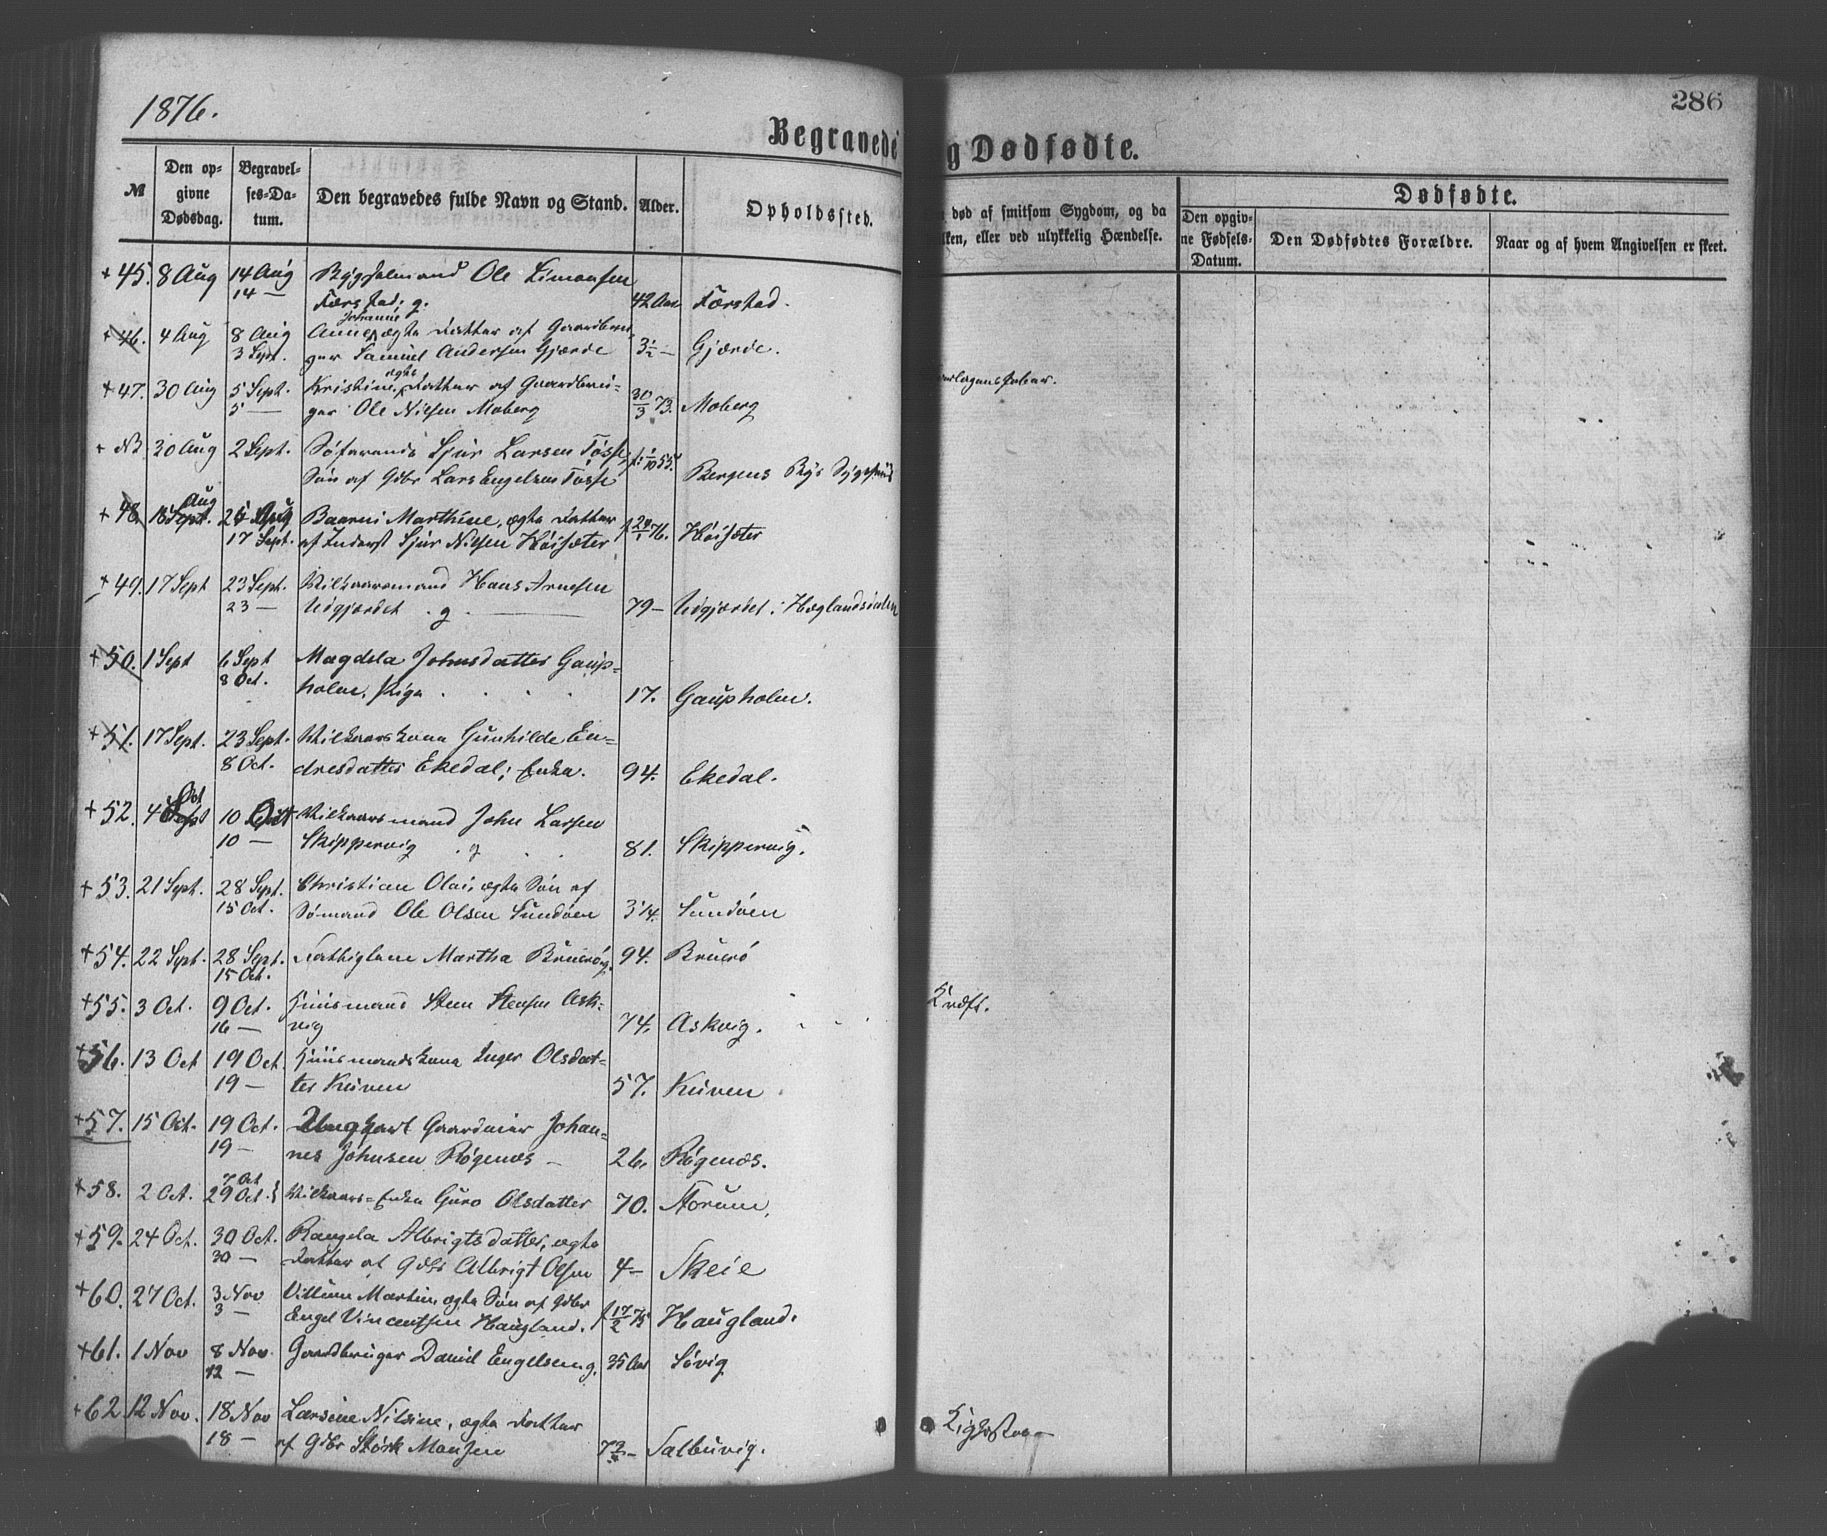 1876.
286
Begravede
g Dødfødte.
№
Den op-
givne
Dødsdag.
Begravel-
ses-Da-
tum.
Den begravedes fulde Navn og Stand.
Alder.
Opholdssted.
død af smitsom Sygdom, og da
lken, eller ved ulykkelig Hændelse.
Dødfødte.
Den opgiv-
ne Fødsels-
Datum.
Den Dødfødtes Forældre.
Naar og af hvem Angivelsen er skeet.
+ 45. 8 Aug 14 Aug Ole Simonsen
14 — Førstad. g. 42 Aar Førstad.
Johanne
+ 46. 4 Aug 8 Aug Anne, ægte Datter af Gaardbru-
3 Sept. ger Samuel Andersen Gjærde 3½ — Gjærde.
ægte
+ 47. 30 Aug 5 Sept. Kristine, Datter af Gaardbru-
5 — ger Ole Nilsen Moberg 30/3 73. Moberg
+ NB 30 Aug 2 Sept. Søfarende Sjur Larsen Tøsse,
Søn af Gdbr Lars Engelsen Tøsse f. 1/10 55. Bergens Bys Sygehuus
Aug
+ 48. 18 Sept. 26 Aug Baarni Marthine, ægte Datter
17 Sept. af Inderst Sjur Nilsen Høisæter f 24/1 76. Høisæter
+ 49. 17 Sept 23 Sept. Vilkaarsmand Hans Arnesen
23 — Udgjærdet . g. — 79 — Udgjærdet i Hæglandsdalen
+ 50. 1 Sept 6 Sept Magdela Johnsdatter Gaup-
8 Oct. holm, Pige 17. Gaupholm.
+ 51. 17 Sept. 23 Sept. Vilkaarskone Gunhilde En-
8 Oct. dresdatter Ekedal; Enke. 94. Ekedal.
Oct
+ 52. 4 Sept 10 Oct Vilkaarsmand John Larsen
10 — Skippervig . g . 81. Skippervig.
+ 53. 21 Sept. 28 Sept. Christian Olai, ægte Søn af
15 Oct. Sømand Ole Olsen Sundøen 3¼. Sundøen
+ 54. 22 Sept. 28 Sept. Fattiglem Martha Bruerøig. 94. Bruerø
15 Oct.
+ 55. 3 Oct. 9 Oct. Huusmand Sten Stensen Ask-
16 — vig 74. Askvig. Kræft.
+ 56. 13 Oct 19 Oct. Huusmandskone Inger Olsdat-
19 — ter Kuven 57. Kuven
+ 57. 15 Oct. 19 Oct. Ungkarl Gaardeier Johan-
19 — nes Johnsen Røgenæs — 26. Røgenæs.
7 Oct
+ 58. 2 Oct. 29 Oct. Vilkaars-Enke Guro Olsdatter 70. Storum.
+ 59. 24 Oct. 30 Oct. Rangela Albrigtsdatter, ægte
30 — Datter af Gdbr Albrigt Olsen 4 — Skeie
+ 60. 27 Oct. 3 Nov Villum Martin, ægte Søn af Gdbr
3 — Engel Vincentsen Haugland. f 17/2 75 Haugland.
+ 61. 1 Nov 8 Nov. Gaardbruger Daniel Engelsen g. 35 Aar Søvig
12 —
+ 62. 12 Nov. 18 Nov Larsine Nilsine, ægte Datter
18 — af Gdbr Størk Monsen Salbuvig.